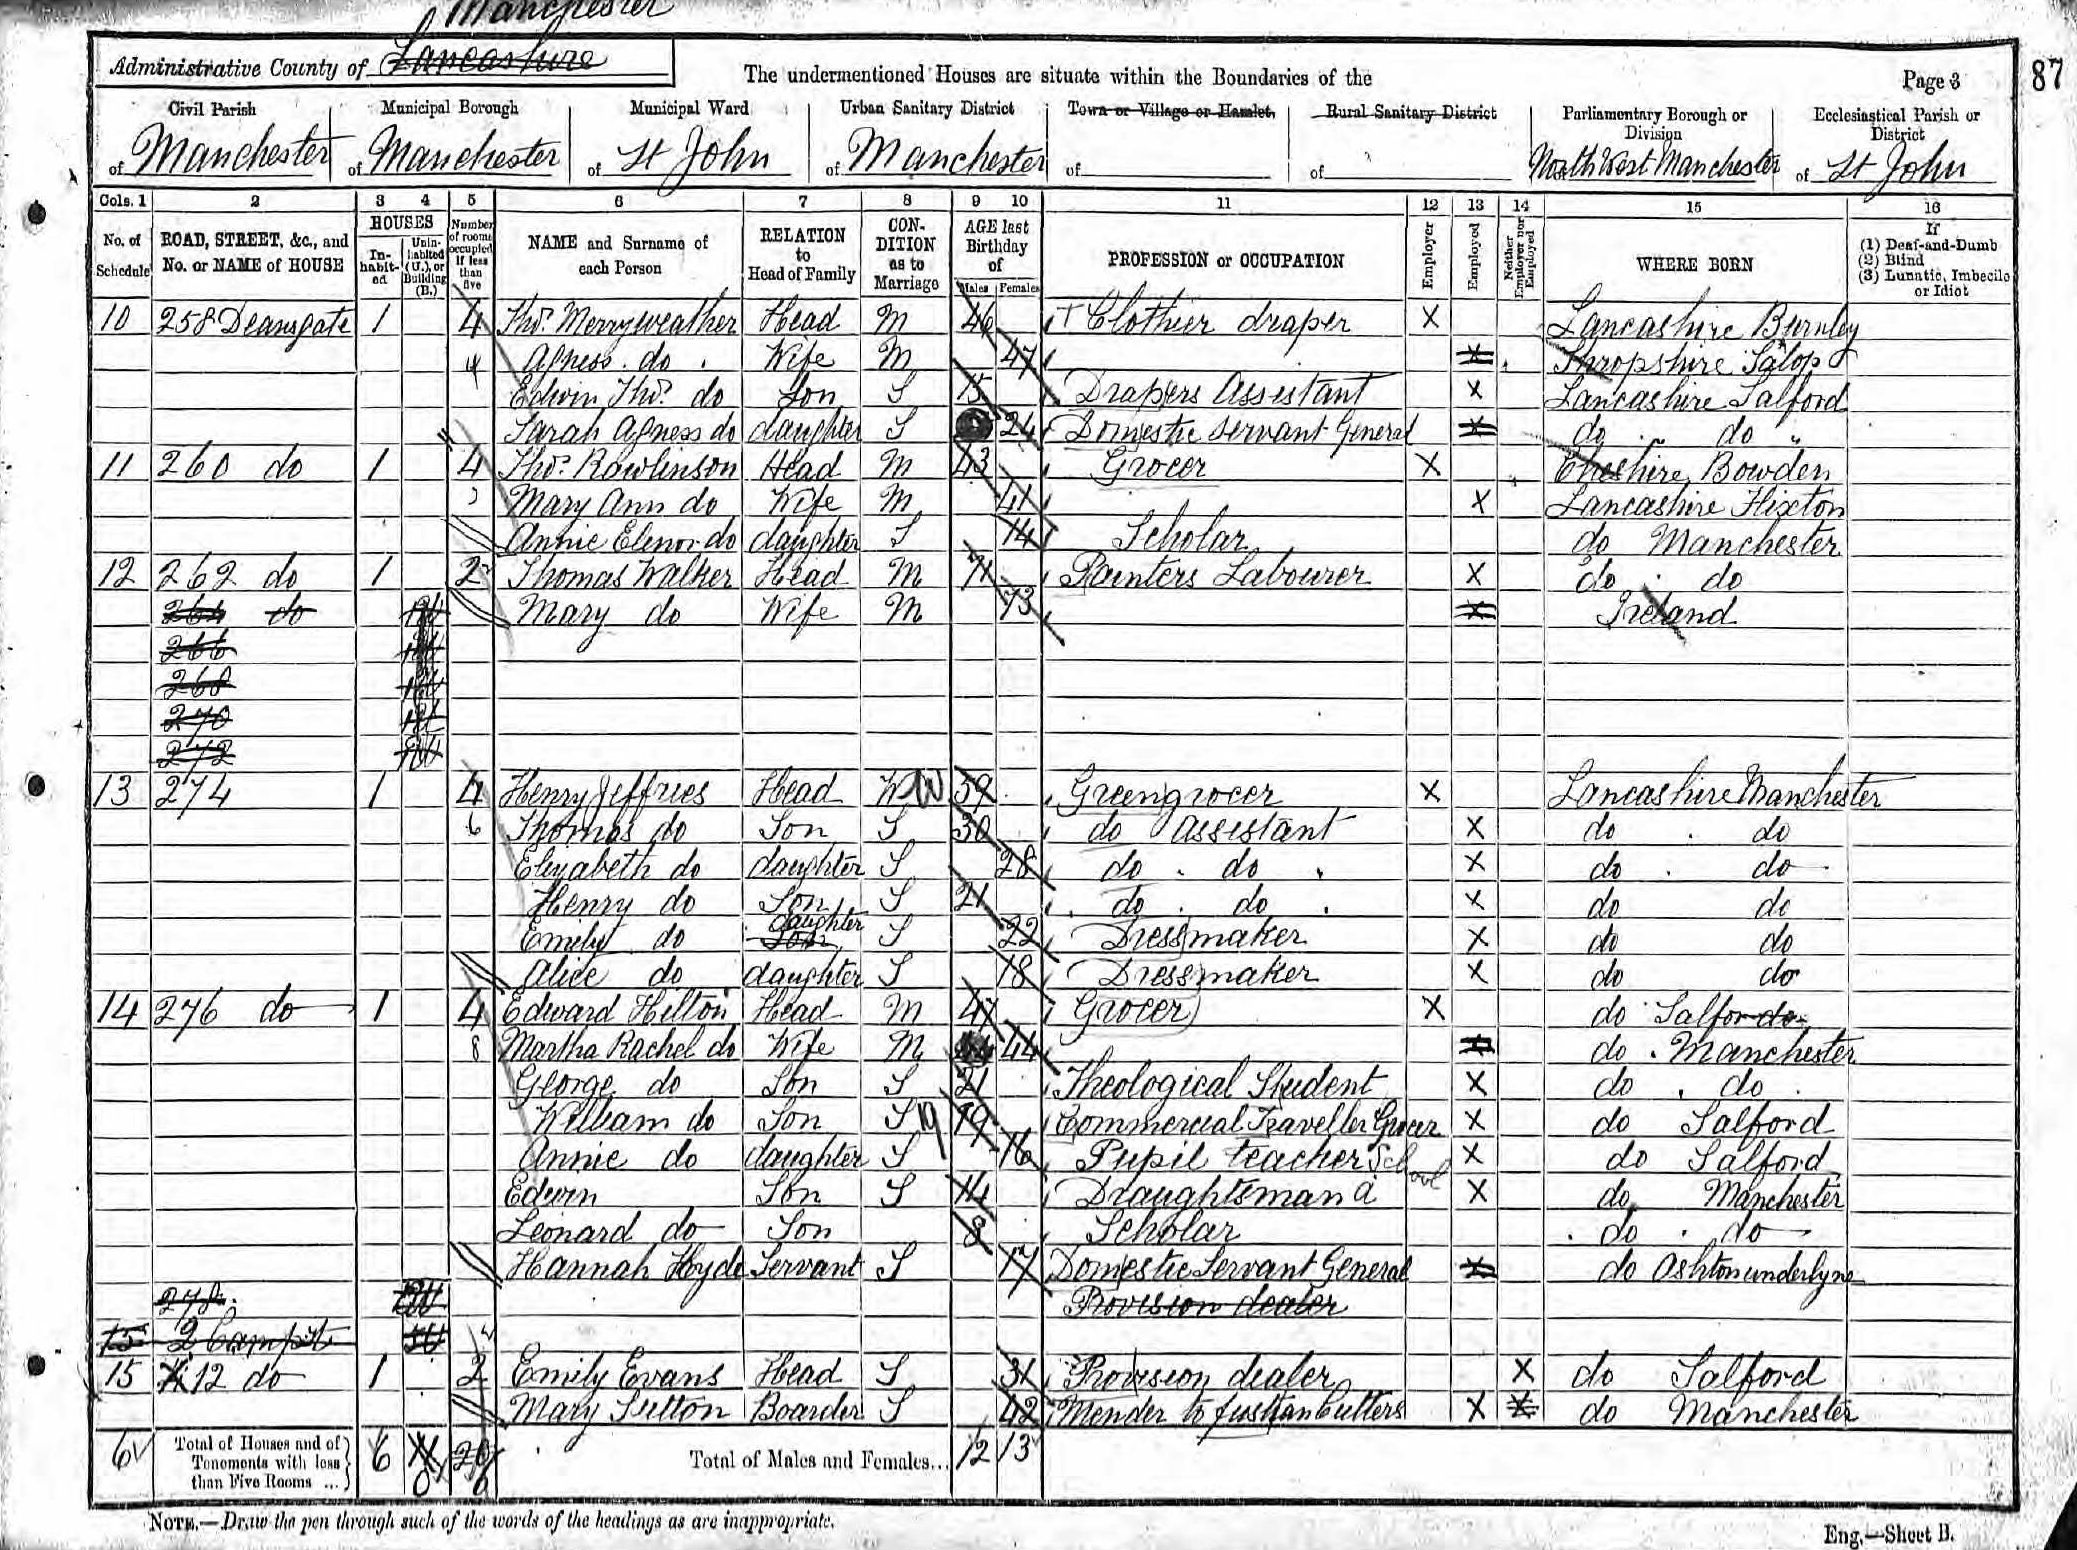 Manchester
Administrative County of Lancashire
The undermentioned Houses are situate within the Boundaries of the
Page 3
87
Civil Parish of Manchester
Municipal Borough of Manchester
Municipal Ward of St John
Urban Sanitary District of Manchester
Town or Village or Hamlet of
Rural Sanitary District of
Parliamentary Borough or Division North West Manchester
Ecclesiastical Parish or District of St John
Cols. 1 2 3 4 5 6 7 8 9 10 11 12 13 14 15 16
No. of Schedule
ROAD, STREET, &c., and No. or NAME of HOUSE
HOUSES
In-habit-ed
Unin-habited (U.), or Building (B.)
Number of rooms occupied if less than five
NAME and Surname of each Person
RELATION to Head of Family
CON-DITION as to Marriage
AGE last Birthday of
Males Females
PROFESSION or OCCUPATION
Employer
Employed
Neither Employer nor Employed
WHERE BORN
If (1) Deaf-and-Dumb (2) Blind (3) Lunatic, Imbecile or Idiot
10 258 Deansgate 1 4 Thos. Merryweather Head M 46 Clothier draper X Lancashire Burnley
4 Agness do Wife M 47 X Shropshire Salop
Edwin Thos. do Son S 15 Drapers Assistant X Lancashire Salford
Sarah Agness do daughter S 24 Domestic Servant General X do do
11 260 do 1 4 Thos. Rowlinson Head M 43 Grocer X Cheshire Bowden
3 Mary Ann do Wife M 41 X Lancashire Flixton
Annie Elenor do daughter S 14 Scholar do Manchester
12 262 do 1 2 Thomas Walker Head M 71 Painters Labourer X do do
264 do Mary do Wife M 73 X Ireland
266
268
270
272
13 274 1 4 Henry Jeffries Head W W 59 Greengrocer X Lancashire Manchester
6 Thomas do Son S 30 do Assistant X do do
Elizabeth do daughter S 28 do do X do do
Henry do Son S 21 do do X do do
Emily do Son daughter S 22 Dressmaker X do do
Alice do daughter S 18 Dressmaker X do do
14 276 do 1 4 Edward Hilton Head M 47 Grocer X do Salford
8 Martha Rachel do Wife M 44 X do Manchester
George do Son S 21 Theological Student X do do
William do Son S 19 19 Commercial Traveller Grocer X do Salford
Annie do daughter S 16 Pupil teacher School X do Salford
Edwin Son S 14 Draughtsman X do Manchester
Leonard do Son 8 Scholar do do
Hannah Hyde Servant S 17 Domestic Servant General X do Ashton underlyne
278 Provision dealer
15 2 Camp St
15 12 do 1 2 Emily Evans Head S 31 Provision dealer X do Salford
Mary Sutton Boarder S 42 Mender to fustian Cutters X X do Manchester
6 Total of Houses and of Tenements with less than Five Rooms ... 6 0 6 Total of Males and Females... 12 13
NOTE.—Draw the pen through such of the words of the headings as are inappropriate.
Eng.—Sheet B.